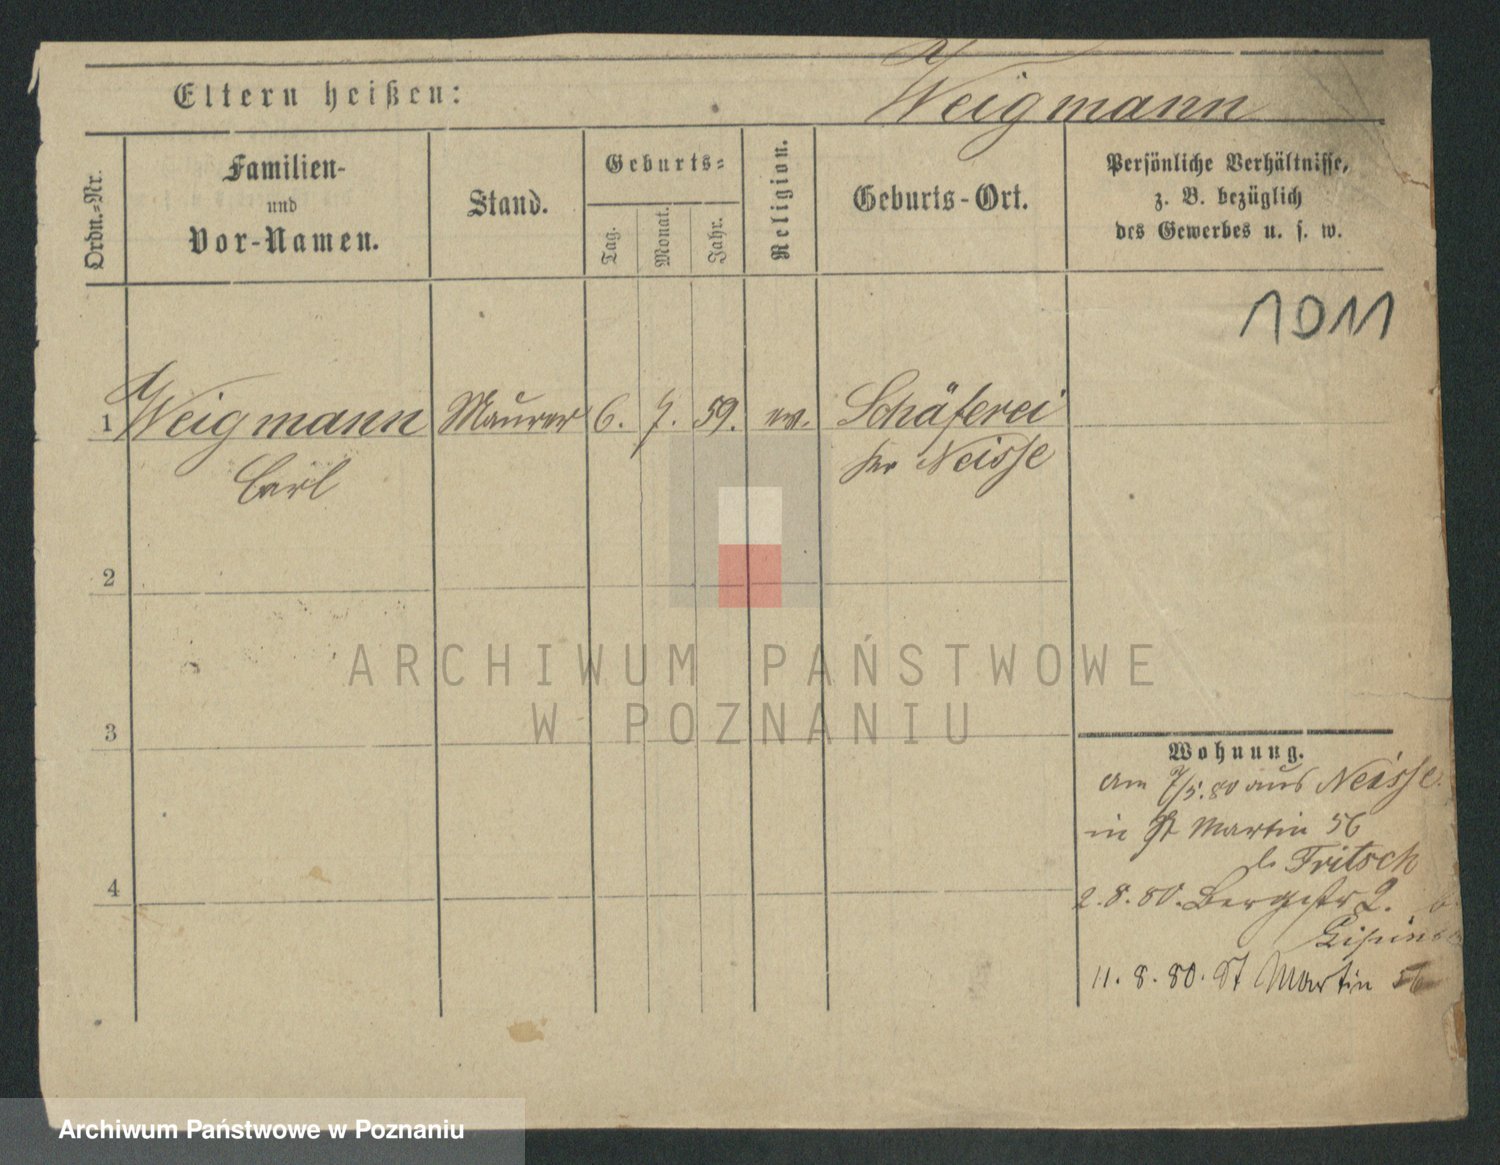 Eltern heißen:
Weigmann
Ordn.-Nr.
Familien-
und
Vor-Namen.
Stand.
Geburts-
Tag.
Monat.
Jahr.
Religion.
Geburts-Ort.
Persönliche Verhältnisse,
z. B. bezüglich
des Gewerbes u. s. w.
1011
1 Weigmann Maurer 6. 7. 59. ev. Schäferei
Carl
Neisse
2
3
4
ARCHIWUM PAŃSTWOWE
W POZNANIU
Wohnung.
am 7/5. 80 aus Neisse.
in St Martin 56
Fritsch
2. 8. 80. Bergstr 2. b
11. 8. 80. St Martin 56
Archiwum Państwowe w Poznaniu